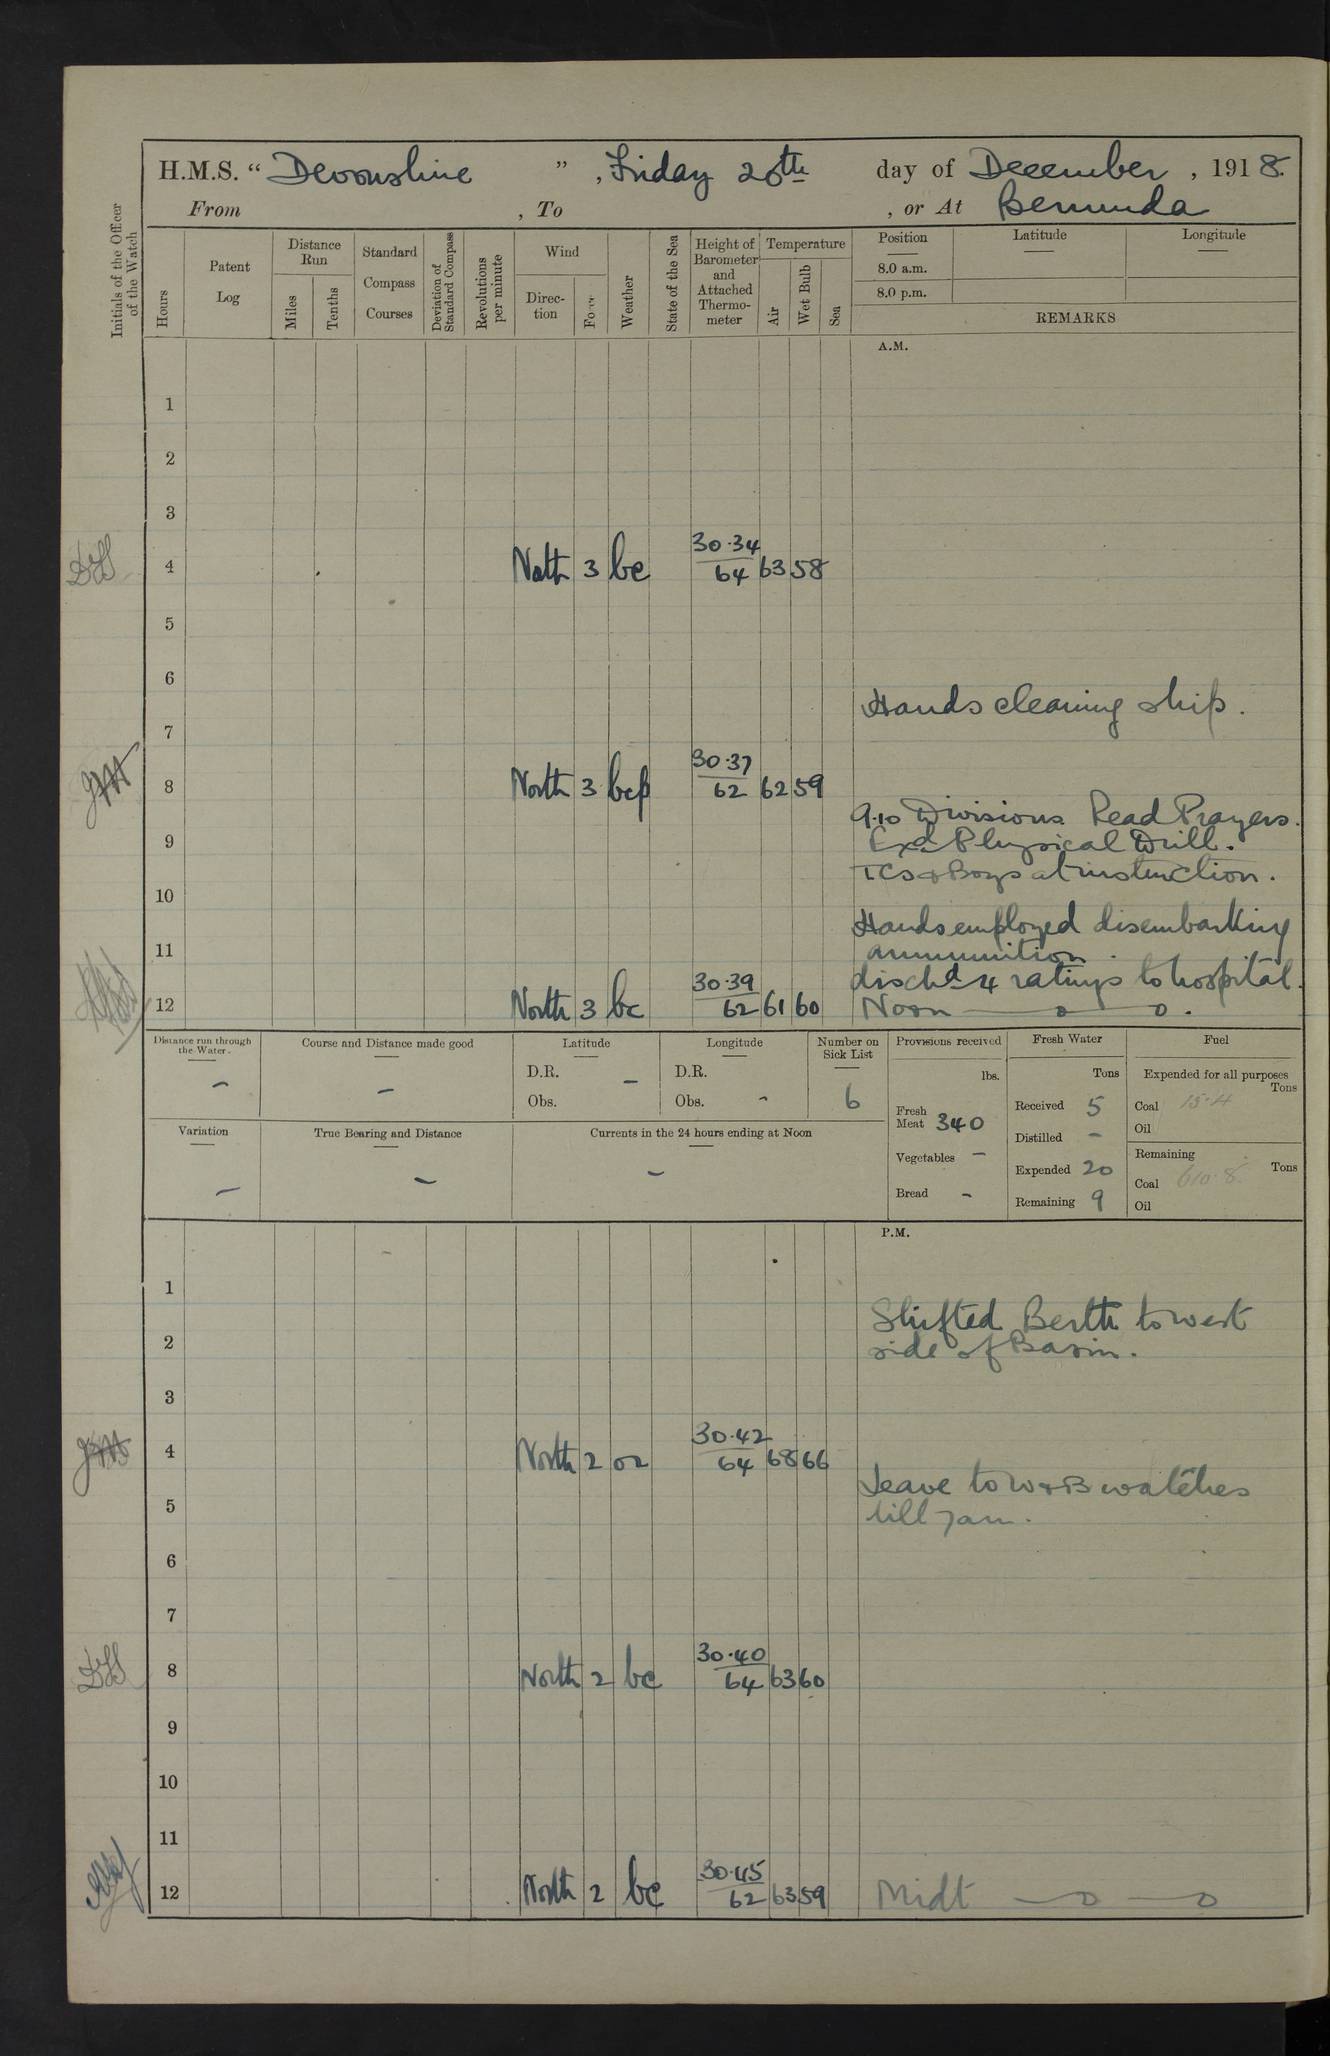 H.M.S. “ Devonshire ” , Friday 20th day of December , 1918.
From , To , or At Bermuda
Initials of the Officer of the Watch
Hours
Patent Log
Distance Run
Miles
Tenths
Standard Compass Courses
Deviation of Standard Compass
Revolutions per minute
Wind
Direc-tion
Force
Weather
State of the Sea
Height of Barometer and Attached Thermo-meter
Temperature
Air
Wet Bulb
Sea
Position
Latitude
Longitude
8.0 a.m.
8.0 p.m.
REMARKS
A.M.
1
2
3
4 North 3 bc 30.34 64 63 58
5
6
Hands cleaning ship.
7
8 North 3 bcp 30.37 62 62 59
9.10 Divisions Read Prayers.
9 Exd Physical Drill.
TCs & Boys at instruction.
10
Hands employed disembarking
11 ammunition.
dischd 4 ratings to hospital.
12 North 3 bc 30.39 62 61 60 Noon — o — o .
Distance run through the Water.
–
Course and Distance made good
–
Latitude
D.R. –
Obs.
Longitude
D.R.
Obs. -
Number on Sick List
6
Provisions received
lbs.
Fresh Meat 340
Vegetables –
Bread -
Fresh Water
Tons
Received 5
Distilled –
Expended 20
Remaining 9
Fuel
Expended for all purposes
Tons
Coal 15.4
Oil
Remaining
Tons
Coal 610.8
Oil
Variation
–
True Bearing and Distance
–
Currents in the 24 hours ending at Noon
–
P.M.
1
Shifted Berth to west
2 side of Basin.
3
4 North 2 or 30.42 64 68 66
Leave to W & B watches
5 till 7am.
6
7
8 North 2 bc 30.40 64 63 60
9
10
11
12 North 2 bc 30.45 62 63 59 Midt — o — o